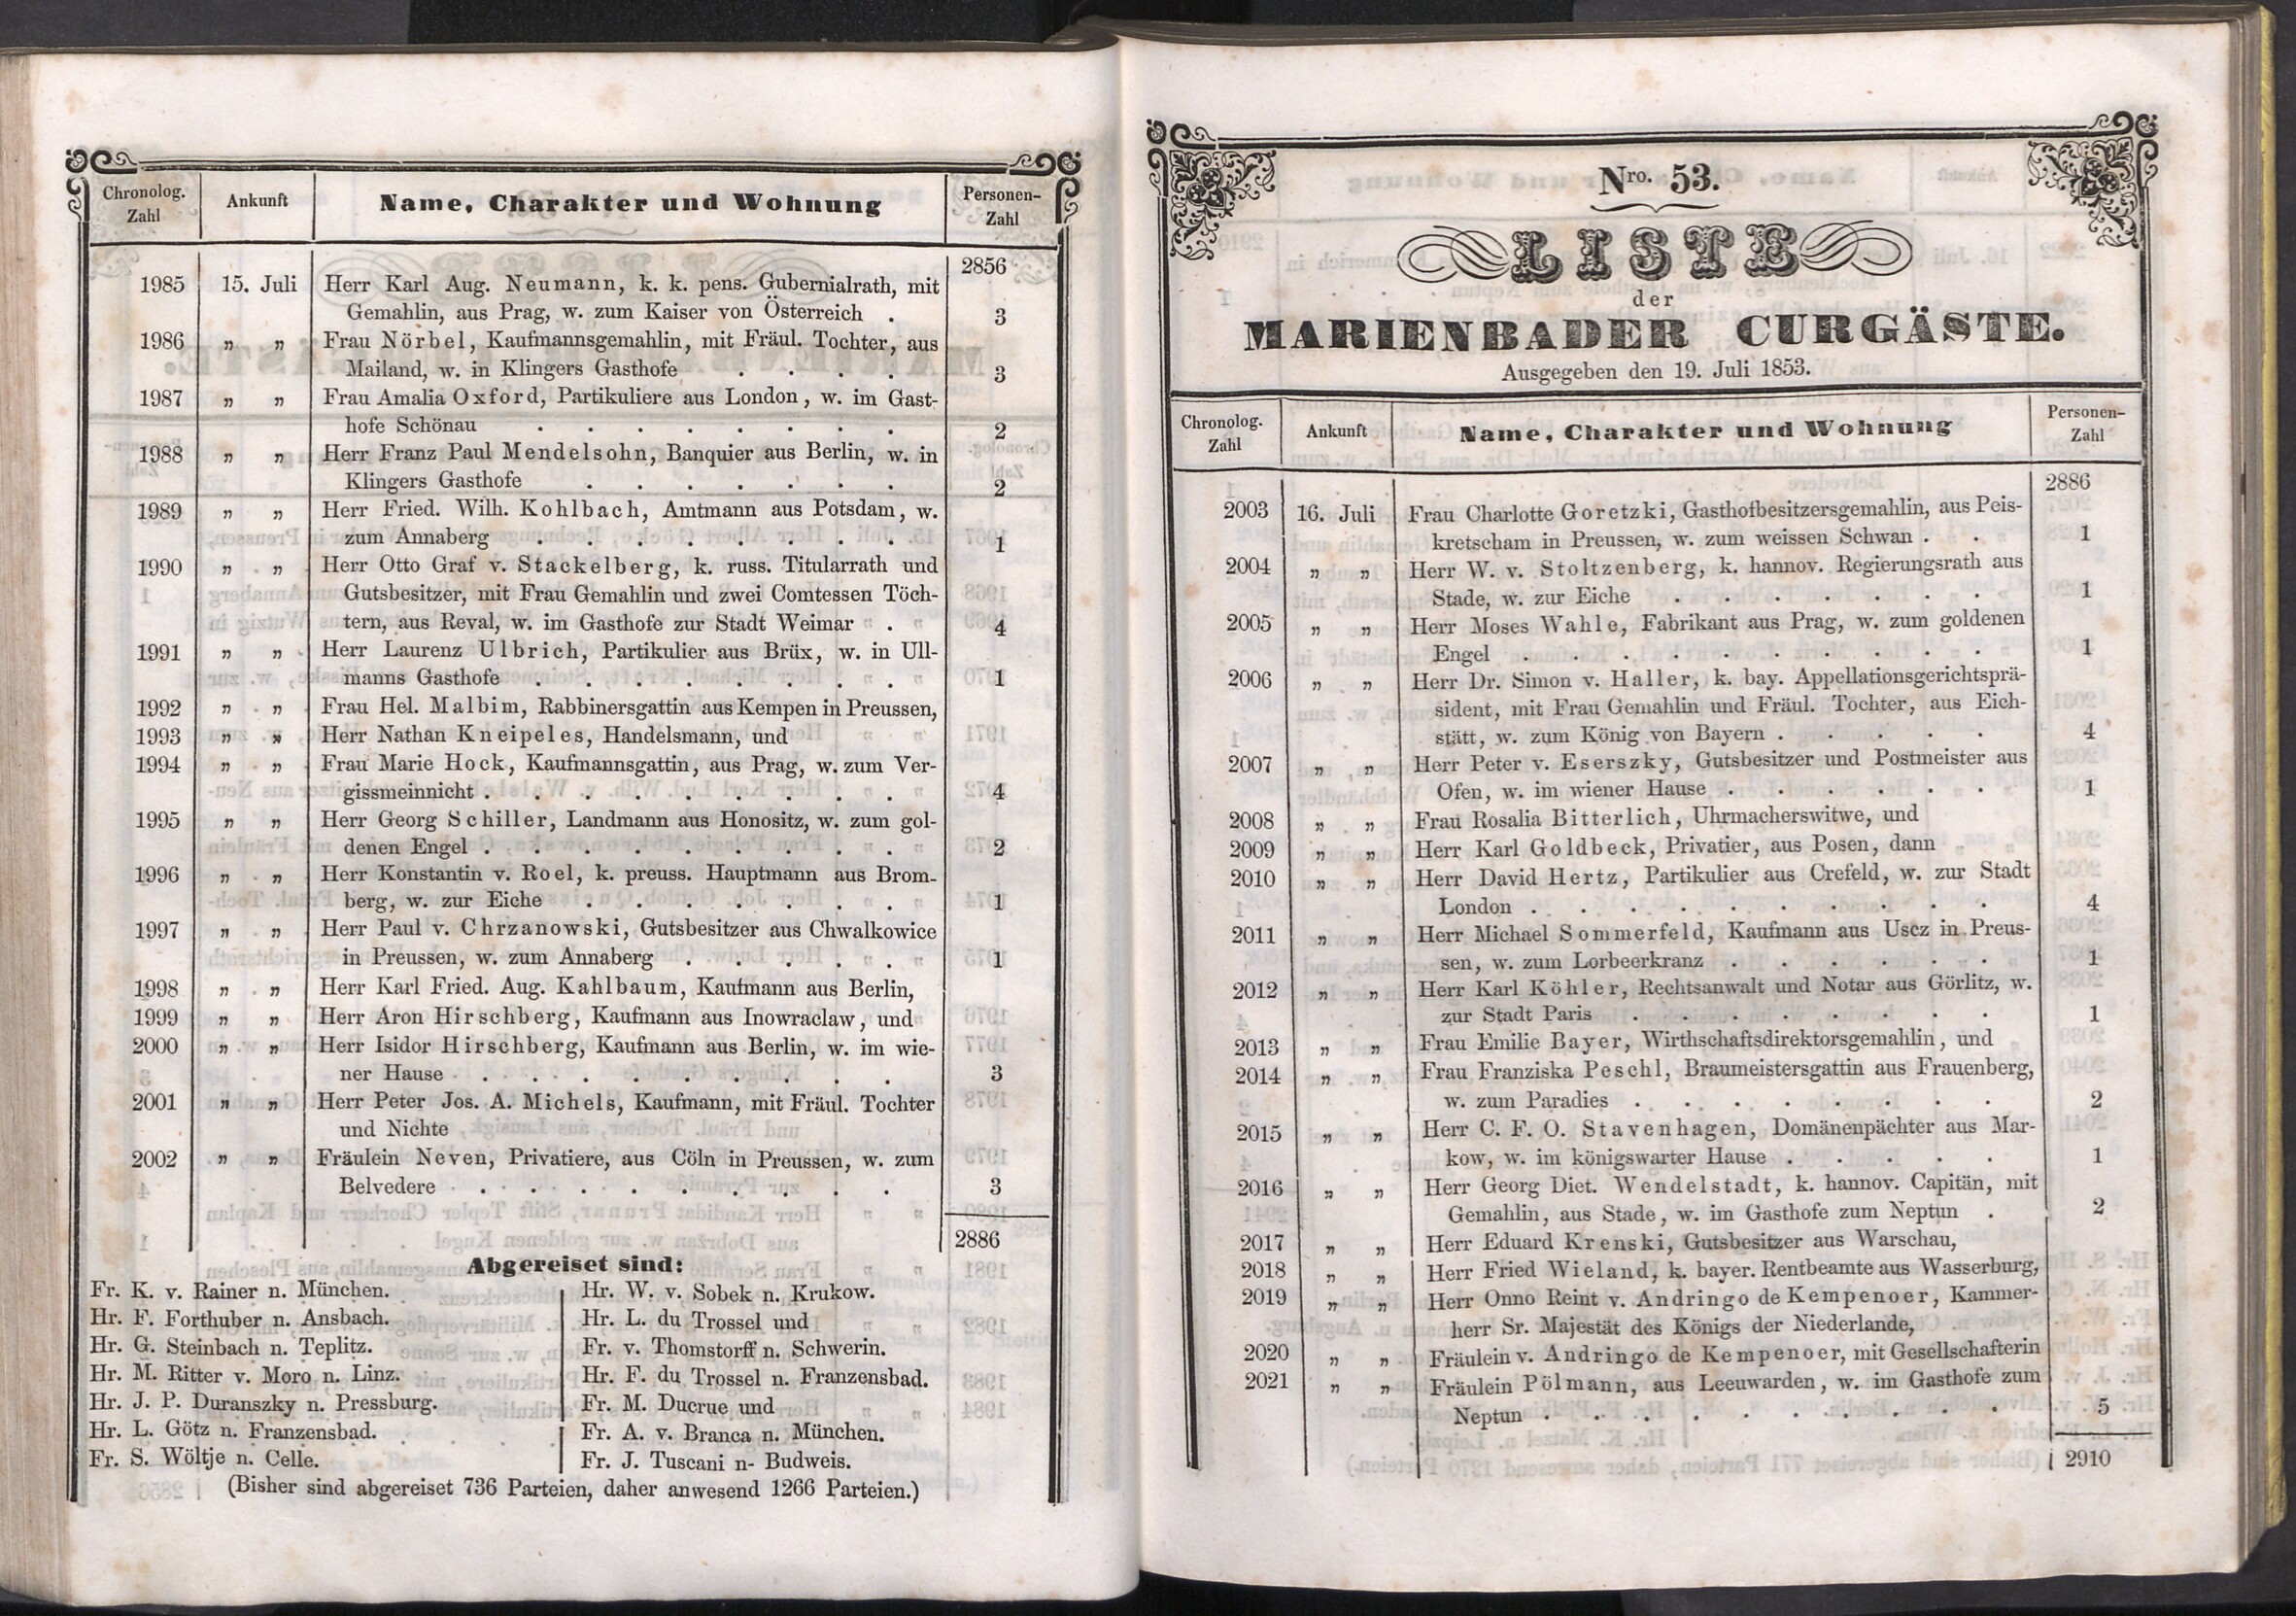 Chronolog. Zahl | Ankunft | Name, Charakter und Wohnung | Personen-Zahl
2856
1985 15. Juli Herr Karl Aug. Neumann, k. k. pens. Gubernialrath, mit
Gemahlin, aus Prag, w. zum Kaiser von Österreich . 3
1986 „ „ Frau Nörbel, Kaufmannsgemahlin, mit Fräul. Tochter, aus
Mailand, w. in Klingers Gasthofe . . . . 3
1987 „ „ Frau Amalia Oxford, Partikuliere aus London, w. im Gast-
hofe Schönau . . . . . . . . 2
1988 „ „ Herr Franz Paul Mendelsohn, Banquier aus Berlin, w. in
Klingers Gasthofe . . . . . . . 2
1989 „ „ Herr Fried. Wilh. Kohlbach, Amtmann aus Potsdam, w.
zum Annaberg . . . . . . . . 1
1990 „ „ Herr Otto Graf v. Stackelberg, k. russ. Titularrath und
Gutsbesitzer, mit Frau Gemahlin und zwei Comtessen Töch-
tern, aus Reval, w. im Gasthofe zur Stadt Weimar . 4
1991 „ „ Herr Laurenz Ulbrich, Partikulier aus Brüx, w. in Ull-
manns Gasthofe . . . . . . . . 1
1992 „ „ Frau Hel. Malbim, Rabbinersgattin aus Kempen in Preussen,
1993 „ „ Herr Nathan Kneipeles, Handelsmann, und
1994 „ „ Frau Marie Hock, Kaufmannsgattin, aus Prag, w. zum Ver-
gissmeinnicht . . . . . . . . . 4
1995 „ „ Herr Georg Schiller, Landmann aus Honositz, w. zum gol-
denen Engel . . . . . . . . . 2
1996 „ „ Herr Konstantin v. Roel, k. preuss. Hauptmann aus Brom-
berg, w. zur Eiche . . . . . . . 1
1997 „ „ Herr Paul v. Chrzanowski, Gutsbesitzer aus Chwalkowice
in Preussen, w. zum Annaberg . . . . . 1
1998 „ „ Herr Karl Fried. Aug. Kahlbaum, Kaufmann aus Berlin,
1999 „ „ Herr Aron Hirschberg, Kaufmann aus Inowraclaw, und
2000 „ „ Herr Isidor Hirschberg, Kaufmann aus Berlin, w. im wie-
ner Hause . . . . . . . . . 3
2001 „ „ Herr Peter Jos. A. Michels, Kaufmann, mit Fräul. Tochter
und Nichte
2002 „ „ Fräulein Neven, Privatiere, aus Cöln in Preussen, w. zum
Belvedere . . . . . . . . . 3
2886
Abgereiset sind:
Fr. K. v. Rainer n. München.
Hr. F. Forthuber n. Ansbach.
Hr. G. Steinbach n. Teplitz.
Hr. M. Ritter v. Moro n. Linz.
Hr. J. P. Duranszky n. Pressburg.
Hr. L. Götz n. Franzensbad.
Fr. S. Wöltje n. Celle.
Hr. W. v. Sobek n. Krukow.
Hr. L. du Trossel und
Fr. v. Thomstorff n. Schwerin.
Hr. F. du Trossel n. Franzensbad.
Fr. M. Ducrue und
Fr. A. v. Branca n. München.
Fr. J. Tuscani n- Budweis.
(Bisher sind abgereiset 736 Parteien, daher anwesend 1266 Parteien.)
Nro. 53.
LISTE
der
MARIENBADER CURGÄSTE.
Ausgegeben den 19. Juli 1853.
Chronolog. Zahl | Ankunft | Name, Charakter und Wohnung | Personen-Zahl
2886
2003 16. Juli Frau Charlotte Goretzki, Gasthofbesitzersgemahlin, aus Peis-
kretscham in Preussen, w. zum weissen Schwan . . 1
2004 „ „ Herr W. v. Stoltzenberg, k. hannov. Regierungsrath aus
Stade, w. zur Eiche . . . . . . . 1
2005 „ „ Herr Moses Wahle, Fabrikant aus Prag, w. zum goldenen
Engel . . . . . . . . . . 1
2006 „ „ Herr Dr. Simon v. Haller, k. bay. Appellationsgerichtsprä-
sident, mit Frau Gemahlin und Fräul. Tochter, aus Eich-
stätt, w. zum König von Bayern . . . . . 4
2007 „ „ Herr Peter v. Eserszky, Gutsbesitzer und Postmeister aus
Ofen, w. im wiener Hause . . . . . . 1
2008 „ „ Frau Rosalia Bitterlich, Uhrmacherswitwe, und
2009 „ „ Herr Karl Goldbeck, Privatier, aus Posen, dann
2010 „ „ Herr David Hertz, Partikulier aus Crefeld, w. zur Stadt
London . . . . . . . . . . 4
2011 „ „ Herr Michael Sommerfeld, Kaufmann aus Uscz in Preus-
sen, w. zum Lorbeerkranz . . . . . . 1
2012 „ „ Herr Karl Köhler, Rechtsanwalt und Notar aus Görlitz, w.
zur Stadt Paris . . . . . . . . 1
2013 „ „ Frau Emilie Bayer, Wirthschaftsdirektorsgemahlin, und
2014 „ „ Frau Franziska Peschl, Braumeistersgattin aus Frauenberg,
w. zum Paradies . . . . . . . . 2
2015 „ „ Herr C. F. O. Stavenhagen, Domänenpächter aus Mar-
kow, w. im königswarter Hause . . . . . 1
2016 „ „ Herr Georg Diet. Wendelstadt, k. hannov. Capitän, mit
Gemahlin, aus Stade, w. im Gasthofe zum Neptun . 2
2017 „ „ Herr Eduard Krenski, Gutsbesitzer aus Warschau,
2018 „ „ Herr Fried Wieland, k. bayer. Rentbeamte aus Wasserburg,
2019 „ „ Herr Onno Reint v. Andringo de Kempenoer, Kammer-
herr Sr. Majestät des Königs der Niederlande,
2020 „ „ Fräulein v. Andringo de Kempenoer, mit Gesellschafterin
2021 „ „ Fräulein Pölmann, aus Leeuwarden, w. im Gasthofe zum
Neptun . . . . . . . . . . 5
2910